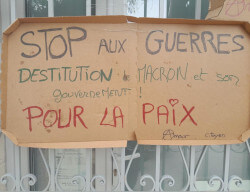 STOP AUX GUERRES
DESTITUTION de MACRON et son
gouvernement !
POUR LA PAIX